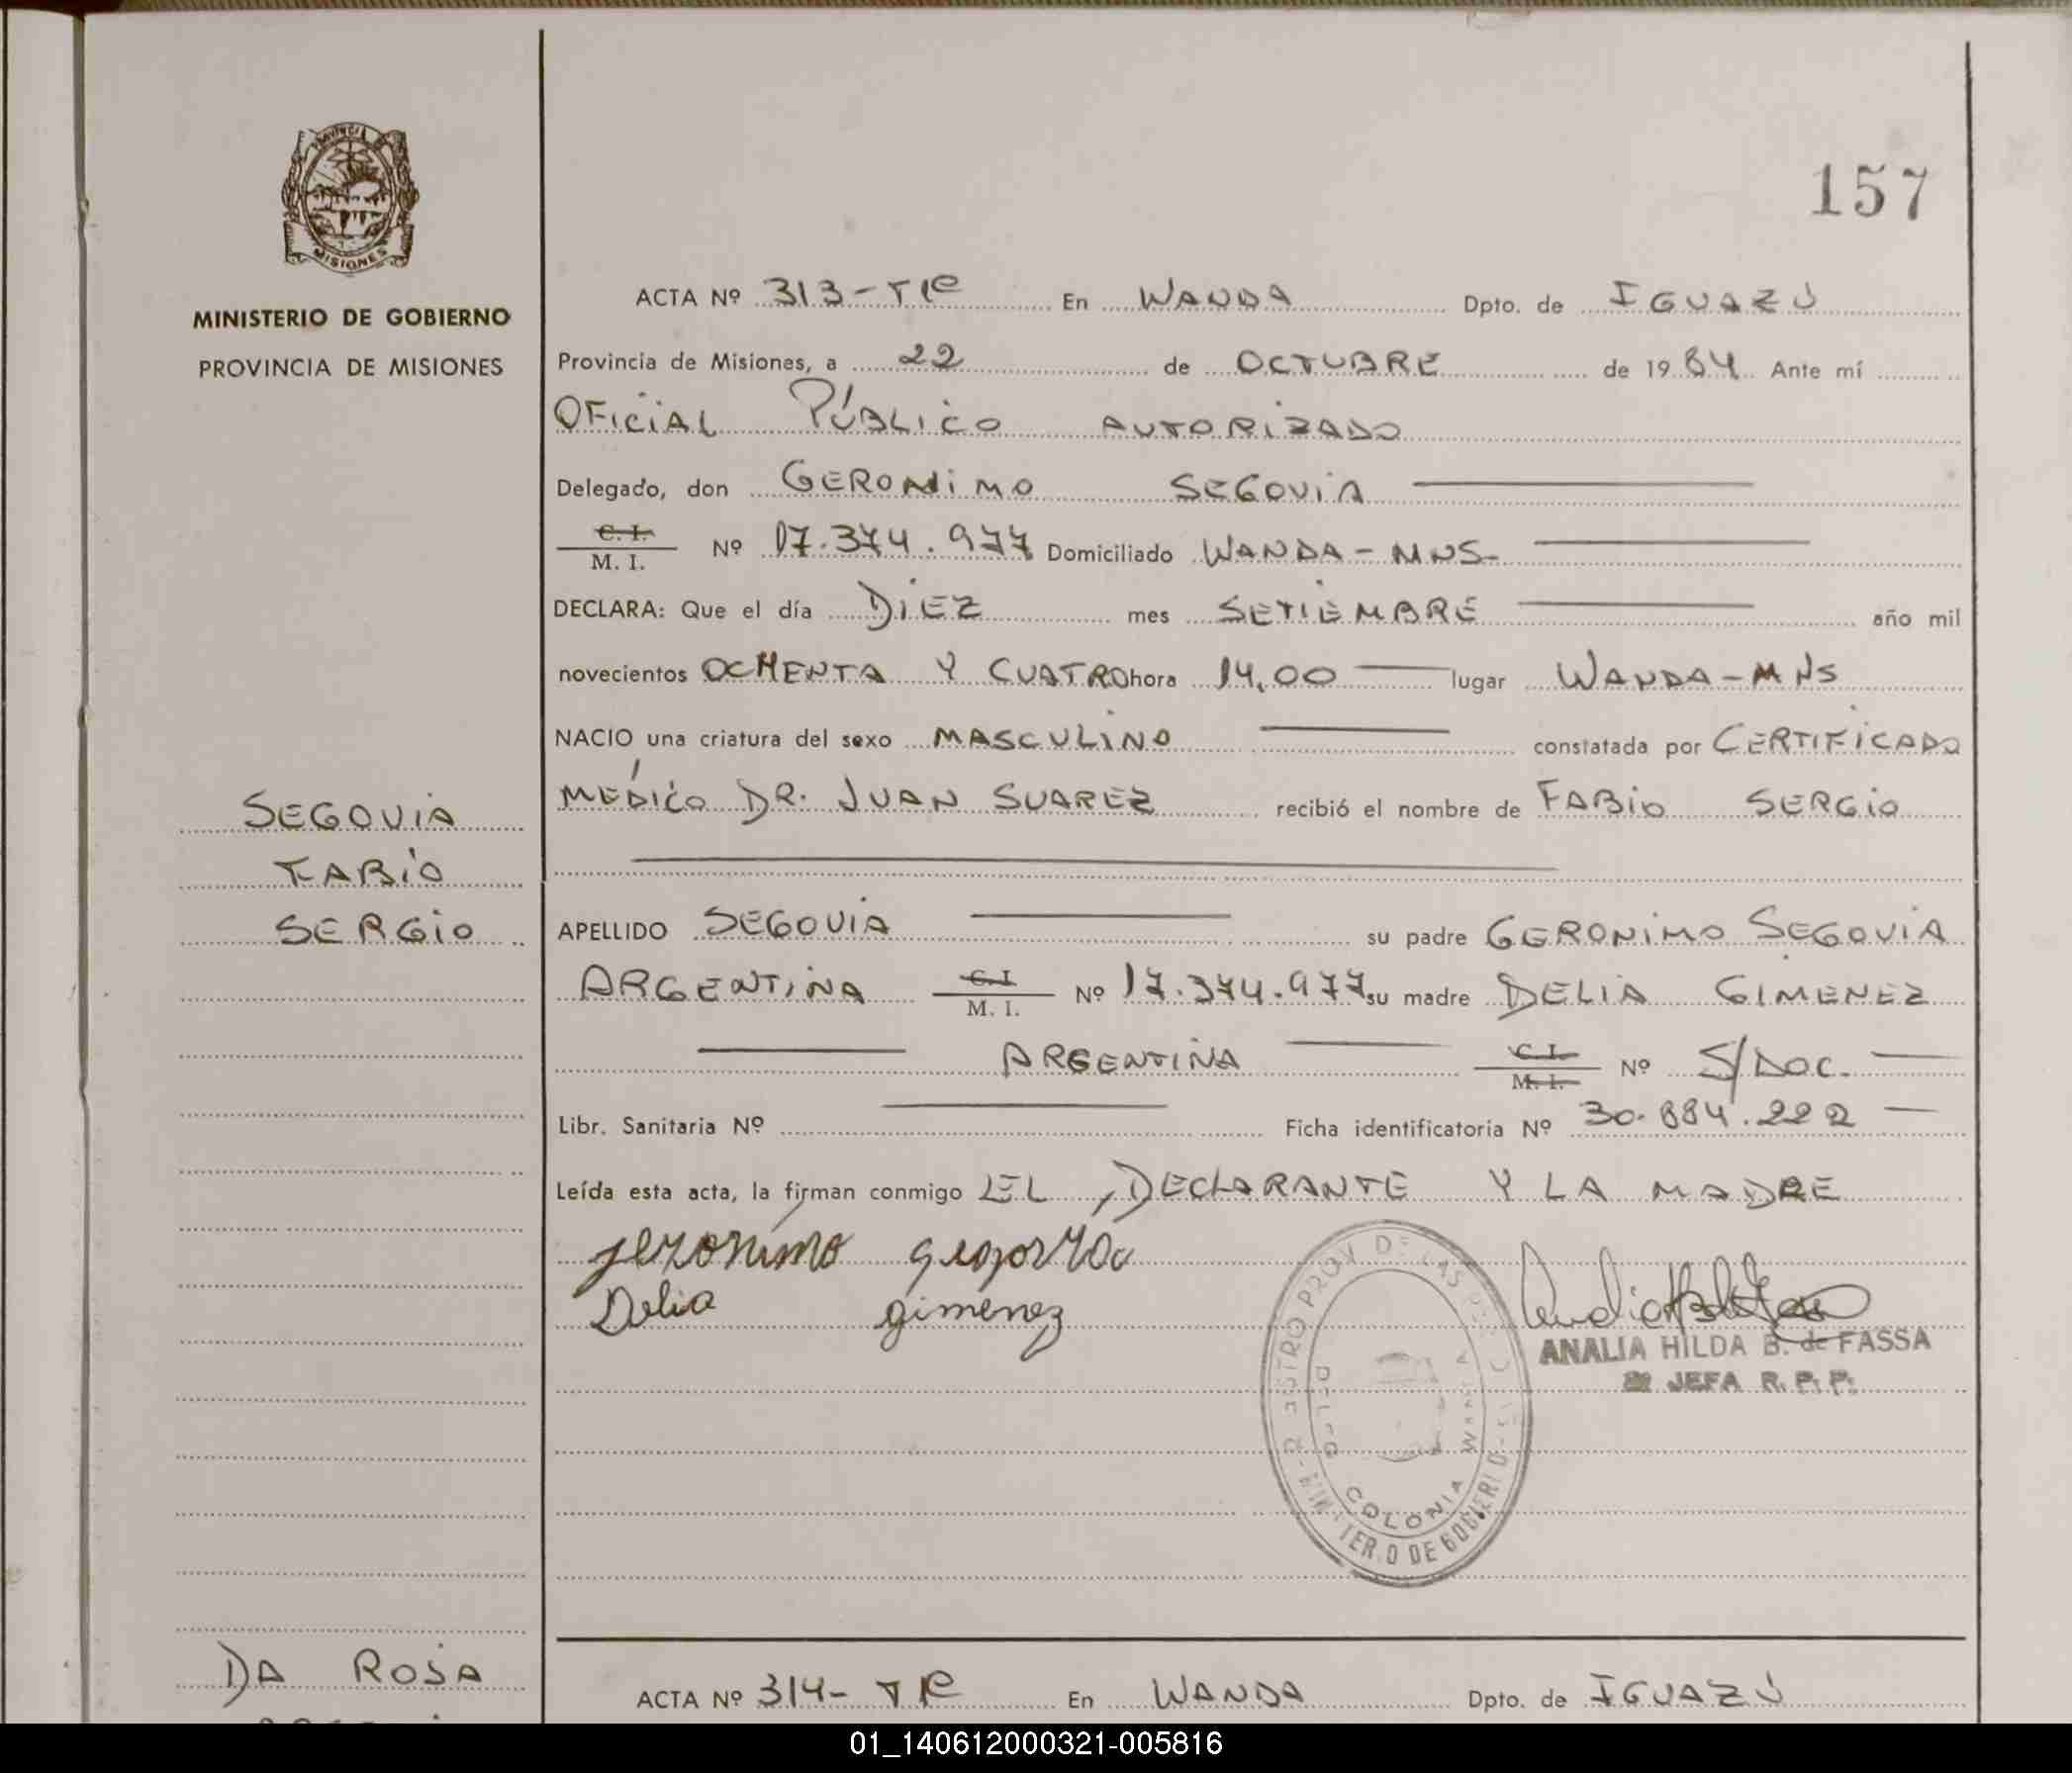 157
PROVINCIA
MISIONES
MINISTERIO DE GOBIERNO
PROVINCIA DE MISIONES
ACTA Nº 313-TR En WANDA Dpto. de IGUAZÚ
Provincia de Misiones, a 22 de OCTUBRE de 1984 Ante mí
OFICIAL PÚBLICO AUTORIZADO
Delegado, don GERONIMO SEGOVIA
C. I.
M. I. Nº 17.374.977 Domiciliado WANDA - MNS-
DECLARA: Que el día DIEZ mes SETIEMBRE año mil
novecientos OCHENTA Y CUATRO hora 14,00 lugar WANDA - MNS
NACIO una criatura del sexo MASCULINO constatada por CERTIFICADO
MÉDICO DR. JUAN SUAREZ recibió el nombre de FABIO SERGIO
SEGOVIA
FABIO
SERGIO
APELLIDO SEGOVIA su padre GERONIMO SEGOVIA
ARGENTINA C. I. M. I. Nº 17.374.977 su madre DELIA GIMENEZ
ARGENTINA C. I. M. I. Nº S/DOC.
Libr. Sanitaria Nº Ficha identificatoria Nº 30.884.222
Leída esta acta, la firman conmigo EL DECLARANTE Y LA MADRE
jeronimo
Delia gimenez
ANALIA HILDA B. de FASSA
JEFA R. P. P.
COLONIA WANDA
DE GOBIERNO
DA ROSA
ACTA Nº 314- TR En WANDA Dpto. de IGUAZÚ
01_140612000321-005816